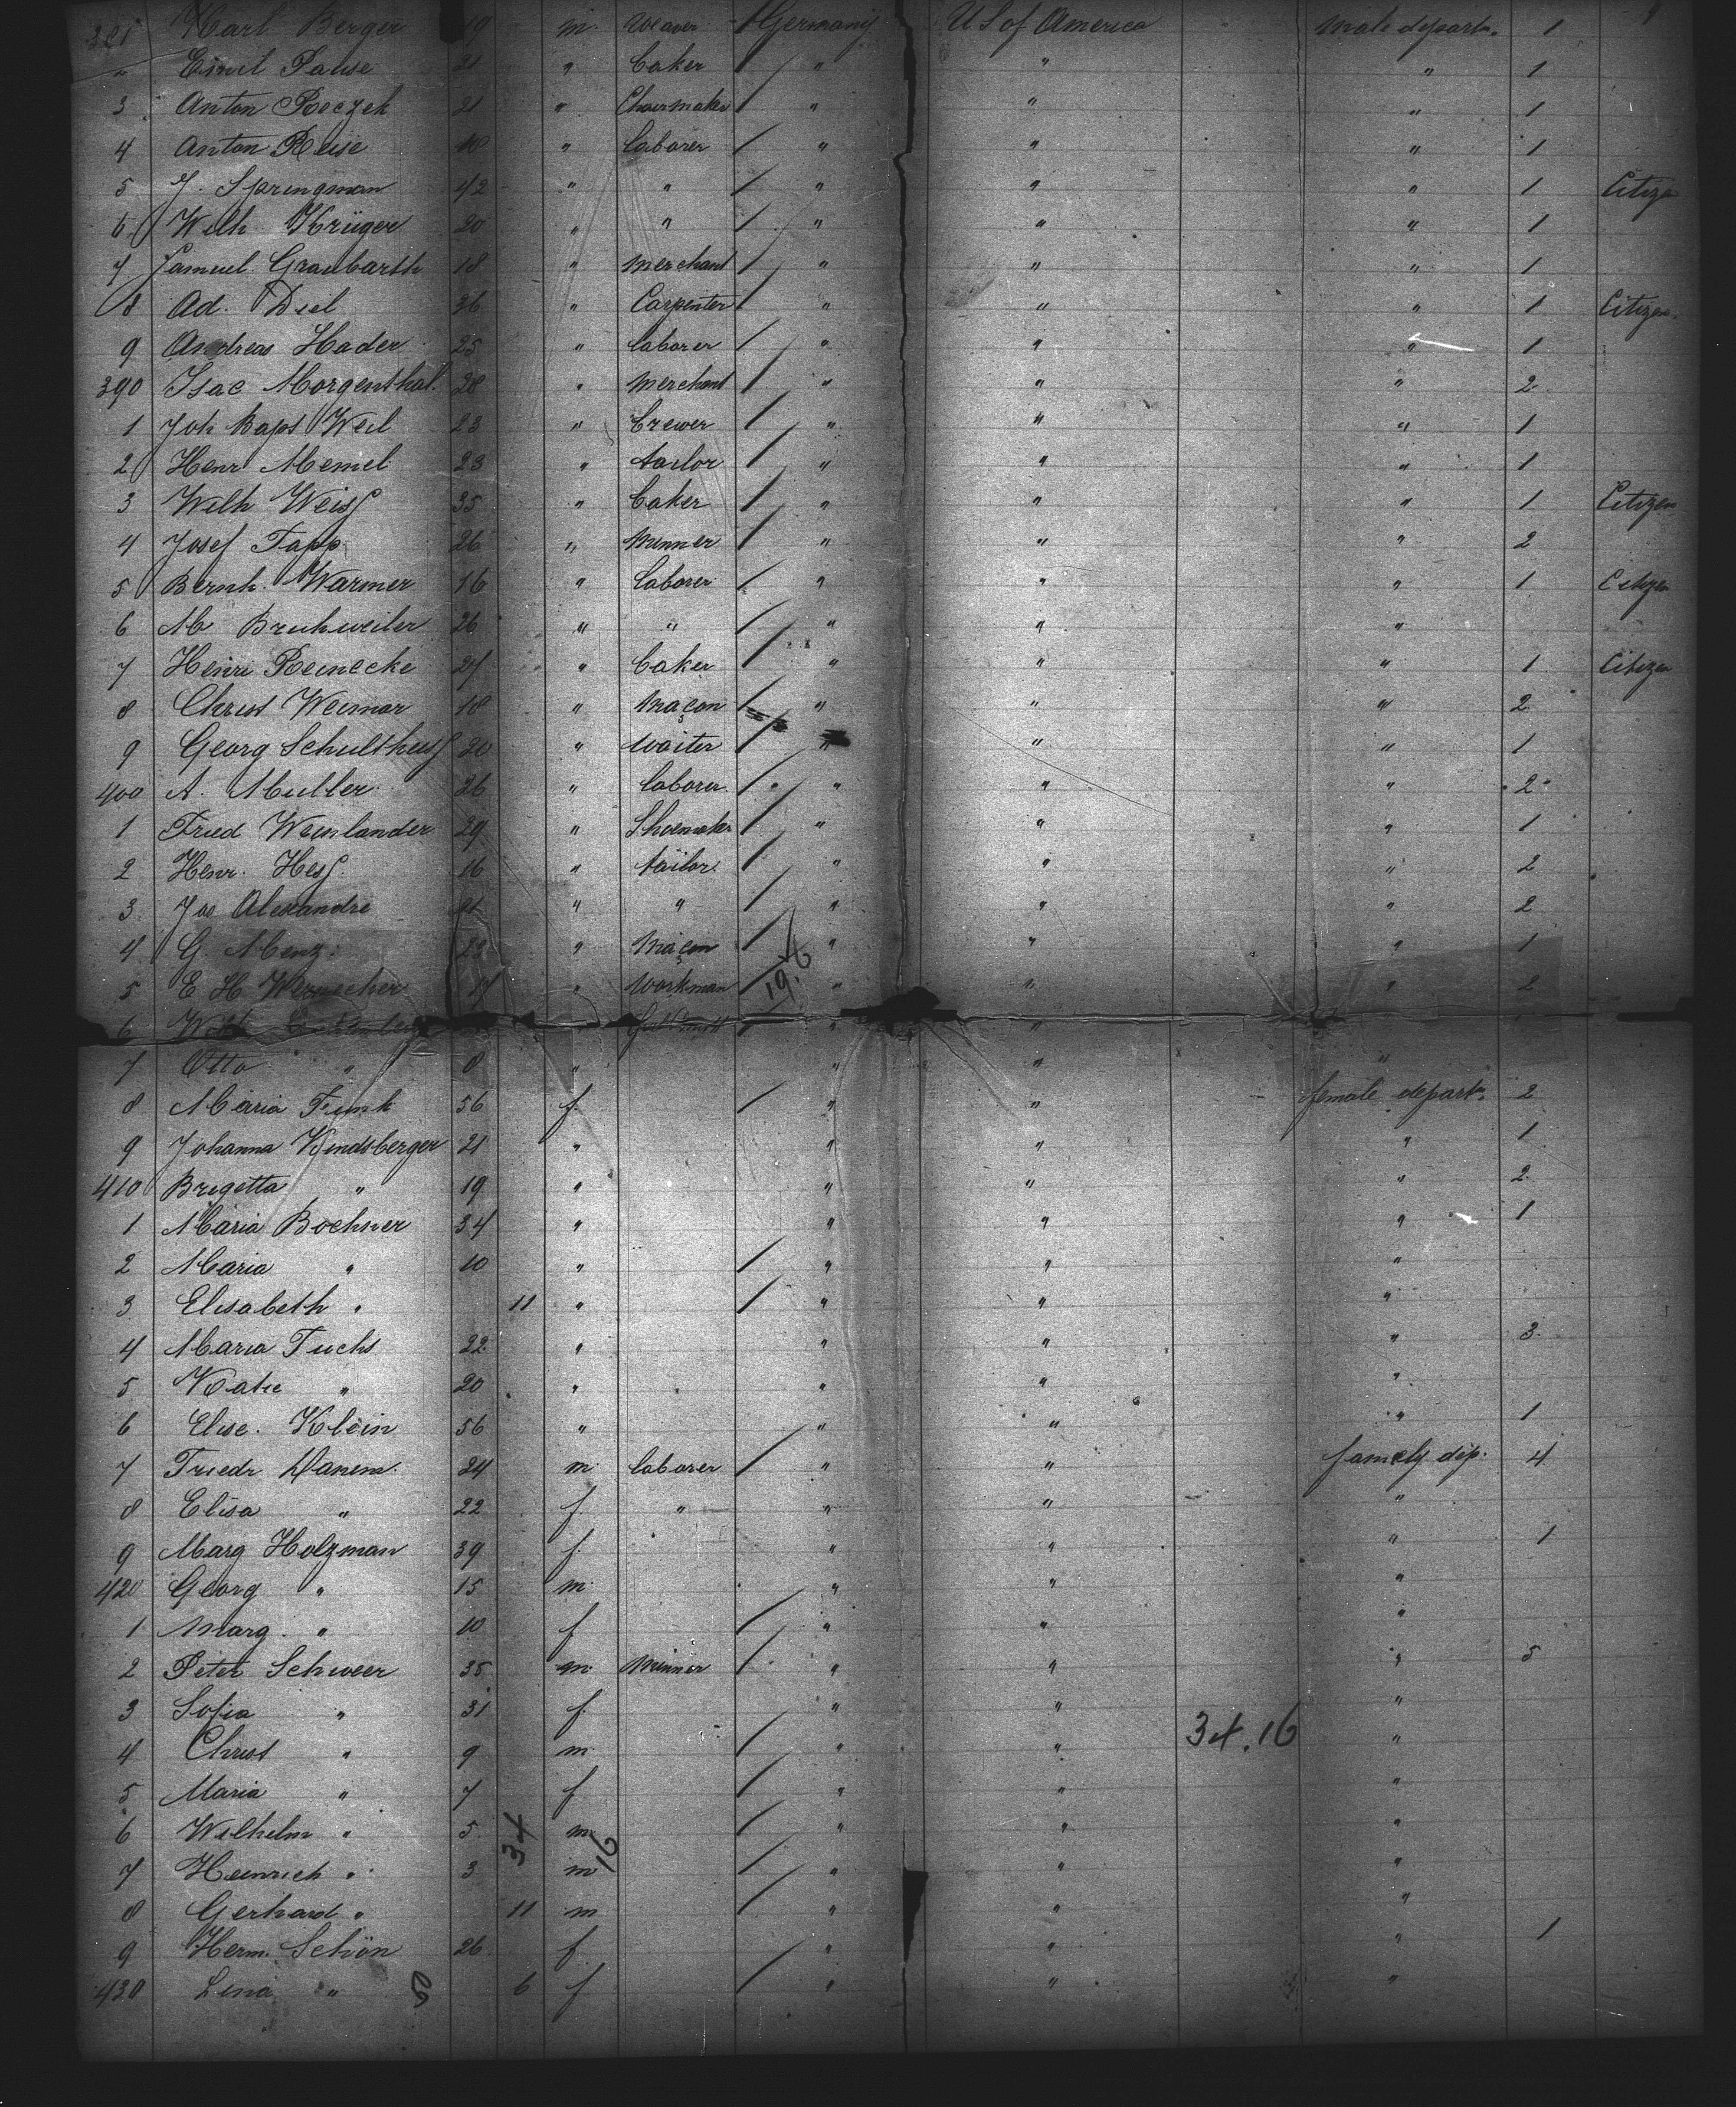 381 Karl Berger 19 m. Weaver Germany U S of America Male depart. 1
2 Emil Pause 21 " baker " " " 1
3 Anton Roczek 21 " Chairmaker " " " 1
4 Anton Reise 18 " laborer " " " 1
5 J. Springman 42 " " " " " 1 Citize
6 Wilh Krüger 20 " " " " " 1
7 Samuel Graubarth 18 " merchant " " " 1
8 Ad. Diel 36 " Carpenter " " " 1 Citizen
9 Andreas Hader 25 " laborer " " " 1
390 Isac Morgenthal. 28 " merchant " " " 2
1 Joh Baps Weil 23 " brewer " " " 1
2 Henr Memel 23 " tailor " " " 1
3 Wilh Weiss 35 " baker " " " 1 Citizen
4 Josef Tapp 26 " minner " " " 2
5 Bernh. Warmer 16 " laborer " " " 1 Citizen
6 M Bruhweiler 26 " " " " "
7 Heinr Reinecke 27 " baker " " " 1 Citizen
8 Christ Weimar 18 " maçon " " " 2
9 Georg Schulthess 20 " waiter " " " 1
400 A. Muller 26 " laborer " " " 2
1 Fried Weinlander 29 " Shoemaker " " " 1
2 Henr. Hess 16 " tailor " " " 2
3 Jos Alexandre 21 " " " " " 2
4 G. Menz 23 " maçon " " " 1
5 E H 17 " workman 19.6 " " " 2
6 " "
7 Otto " 8 " " " "
8 Maria Funk 56 f. " " female depart. 2
9 Johanna Kindsberger 21 " " " " 1
410 Brigetta " 19 " " " " 2
1 Maria Bochner 34 " " " " 1
2 Maria " 10 " " " "
3 Elisabeth " 11 " " " "
4 Maria Fuchs 22 " " " " 3
5 Katie " 20 " " " "
6 Elise. Klein 56 " " " " 1
7 Friedr Hanem. 24 m laborer " " famely dep. 4
8 Elisa " 22 f. " " " "
9 Marg Holzman 39 f. " " " 1
420 Georg " 15 m. " " "
1 Marg. " 10 f " " "
2 Peter Schweer 35 m minner " " " 5
3 Sofia " 31 f. " " "
4 Christ " 9 m " " 34.16 "
5 Maria " 7 f " " "
6 Wilhelm " 5 34 m 16 " " "
7 Heinrich " 3 m " " "
8 Gerhard " 11 m " " "
9 Herm. Schön 26 f. " " " 1
430 Lina " 6 f " " "